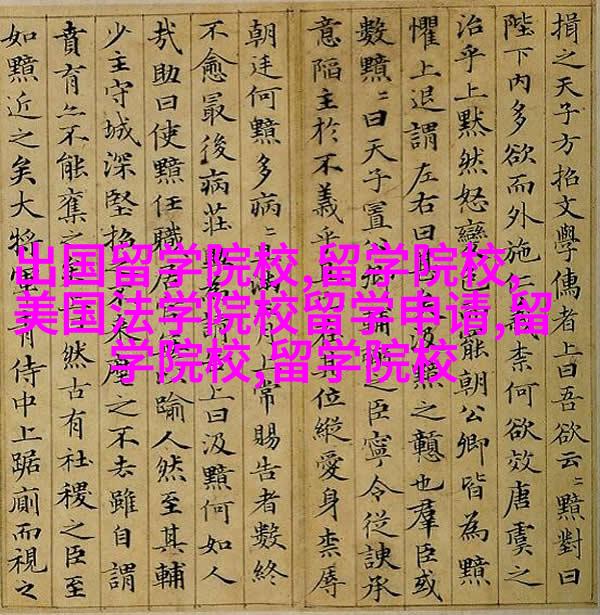 揖之天子方招文學儒者上曰吾欲云〻黯對曰
陛下内多欲而外施仁義柰何欲效唐虞之
治乎上黙然怒變色而罷朝公卿皆為黯
懼上退謂左右曰甚矣汲黯之戇也羣臣或
數黯〻曰天子置公卿輔弼之臣寧令從諛承
意陥主於不義乎且已在其位縱愛身柰辱
朝廷何黯多病〻且滿三月上常賜告者數終
不愈最後病莊助為請告上曰汲黯何如人
㢤助曰使黯任職居官無以踰人然至其輔
少主守城深堅招之不来麾之不去雖自謂
賁育亦不能奪之矣上曰然古有社稷之臣至
如黯近之矣大將軍青侍中上踞廁而視之
出国留学院校,留学院校,
美国法学院校留学申请,留
学院校,留学院校